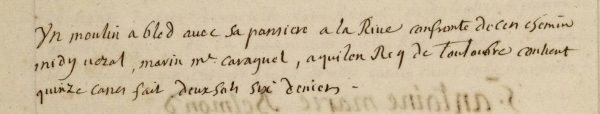 Yn moulin a bled avec sa passiere a la Riue confronte de cers chemin
midy vezal, marin mr. caraguel, aquilon Req de Touloubre contient
quinze canes fait deux sols six deniers -